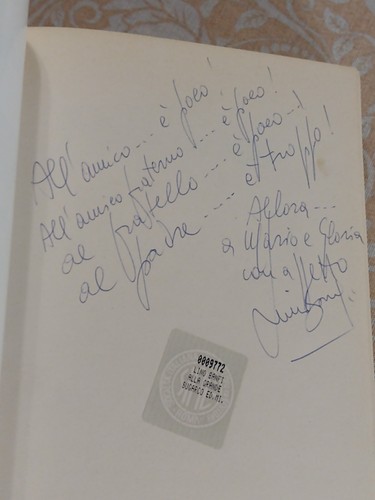 All'amico... è poco!
All'amico fraterno... è poco!
al fratello... è poco...!
al padre..... è troppo!
Allora...
a Mario e Gloria
con affetto
Lino Banfi
0009772
LINO BANFI
ALLA GRANDE
SUGARCO ED.MI.